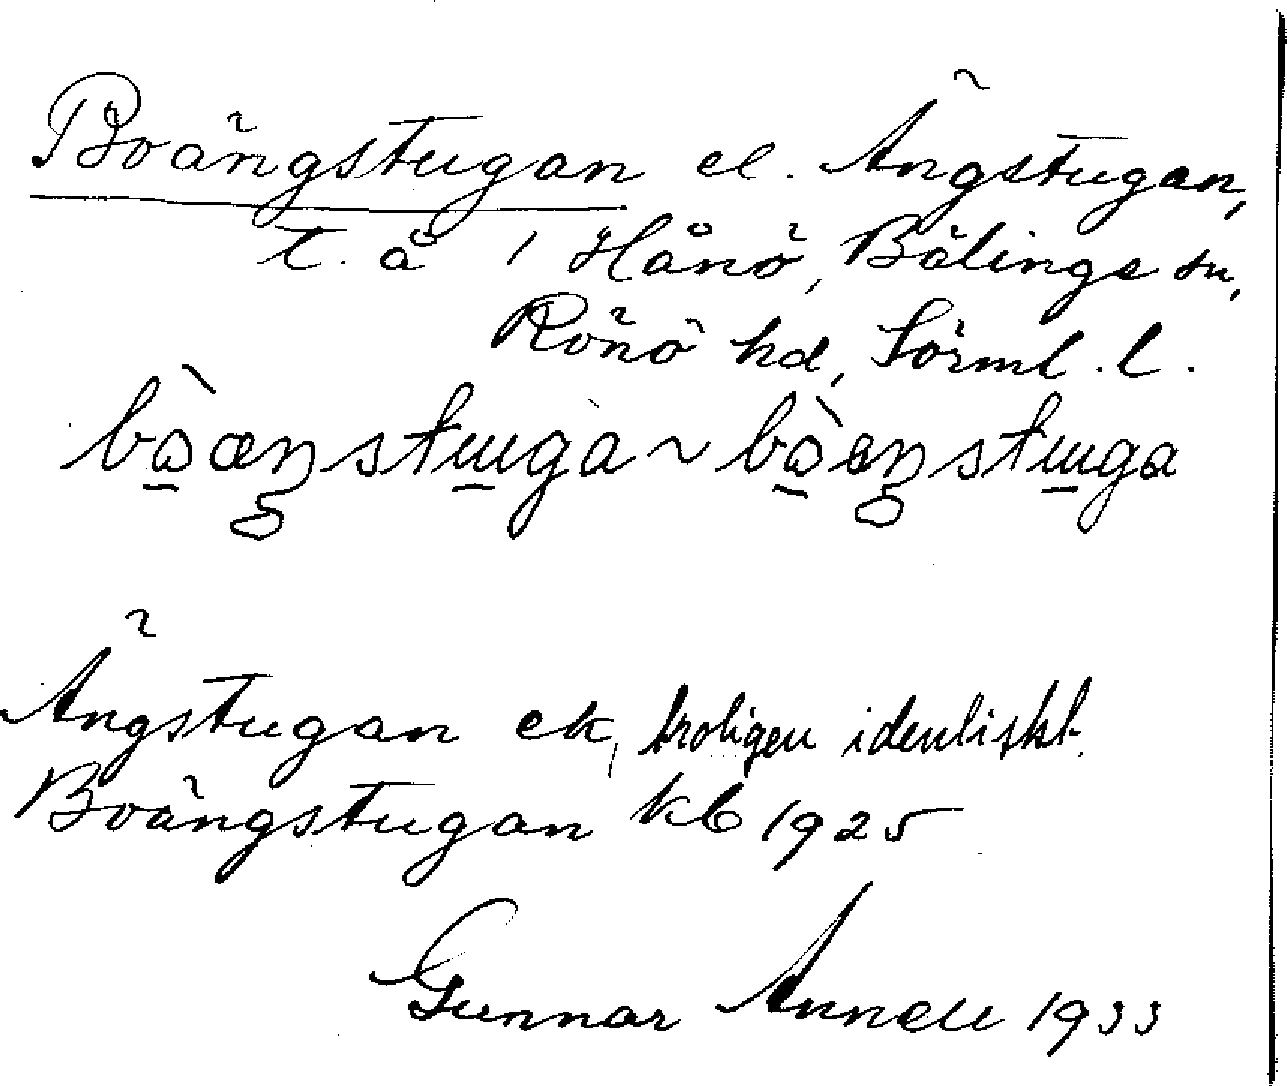 Boängstugan el. Ängstugan,
t. å 1 Hånö, Bälinge sn,
Rönö hd, Sörml. l.
Ängstugan ek, troligen identiskt.
Boängstugan kb 1925
Gunnar Annell 1933